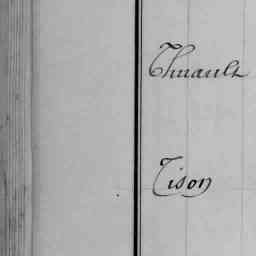 Thuault
Tison